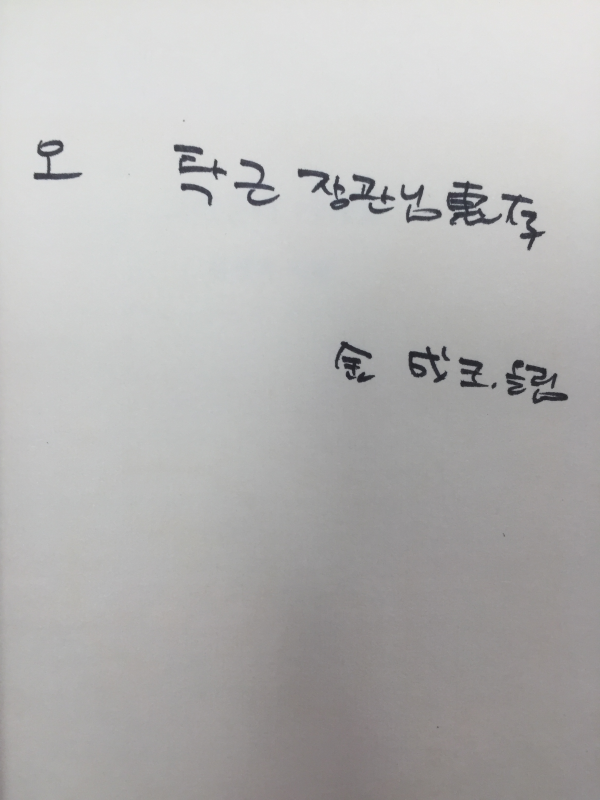 오 탁근 장관님 惠存
金 成 올림